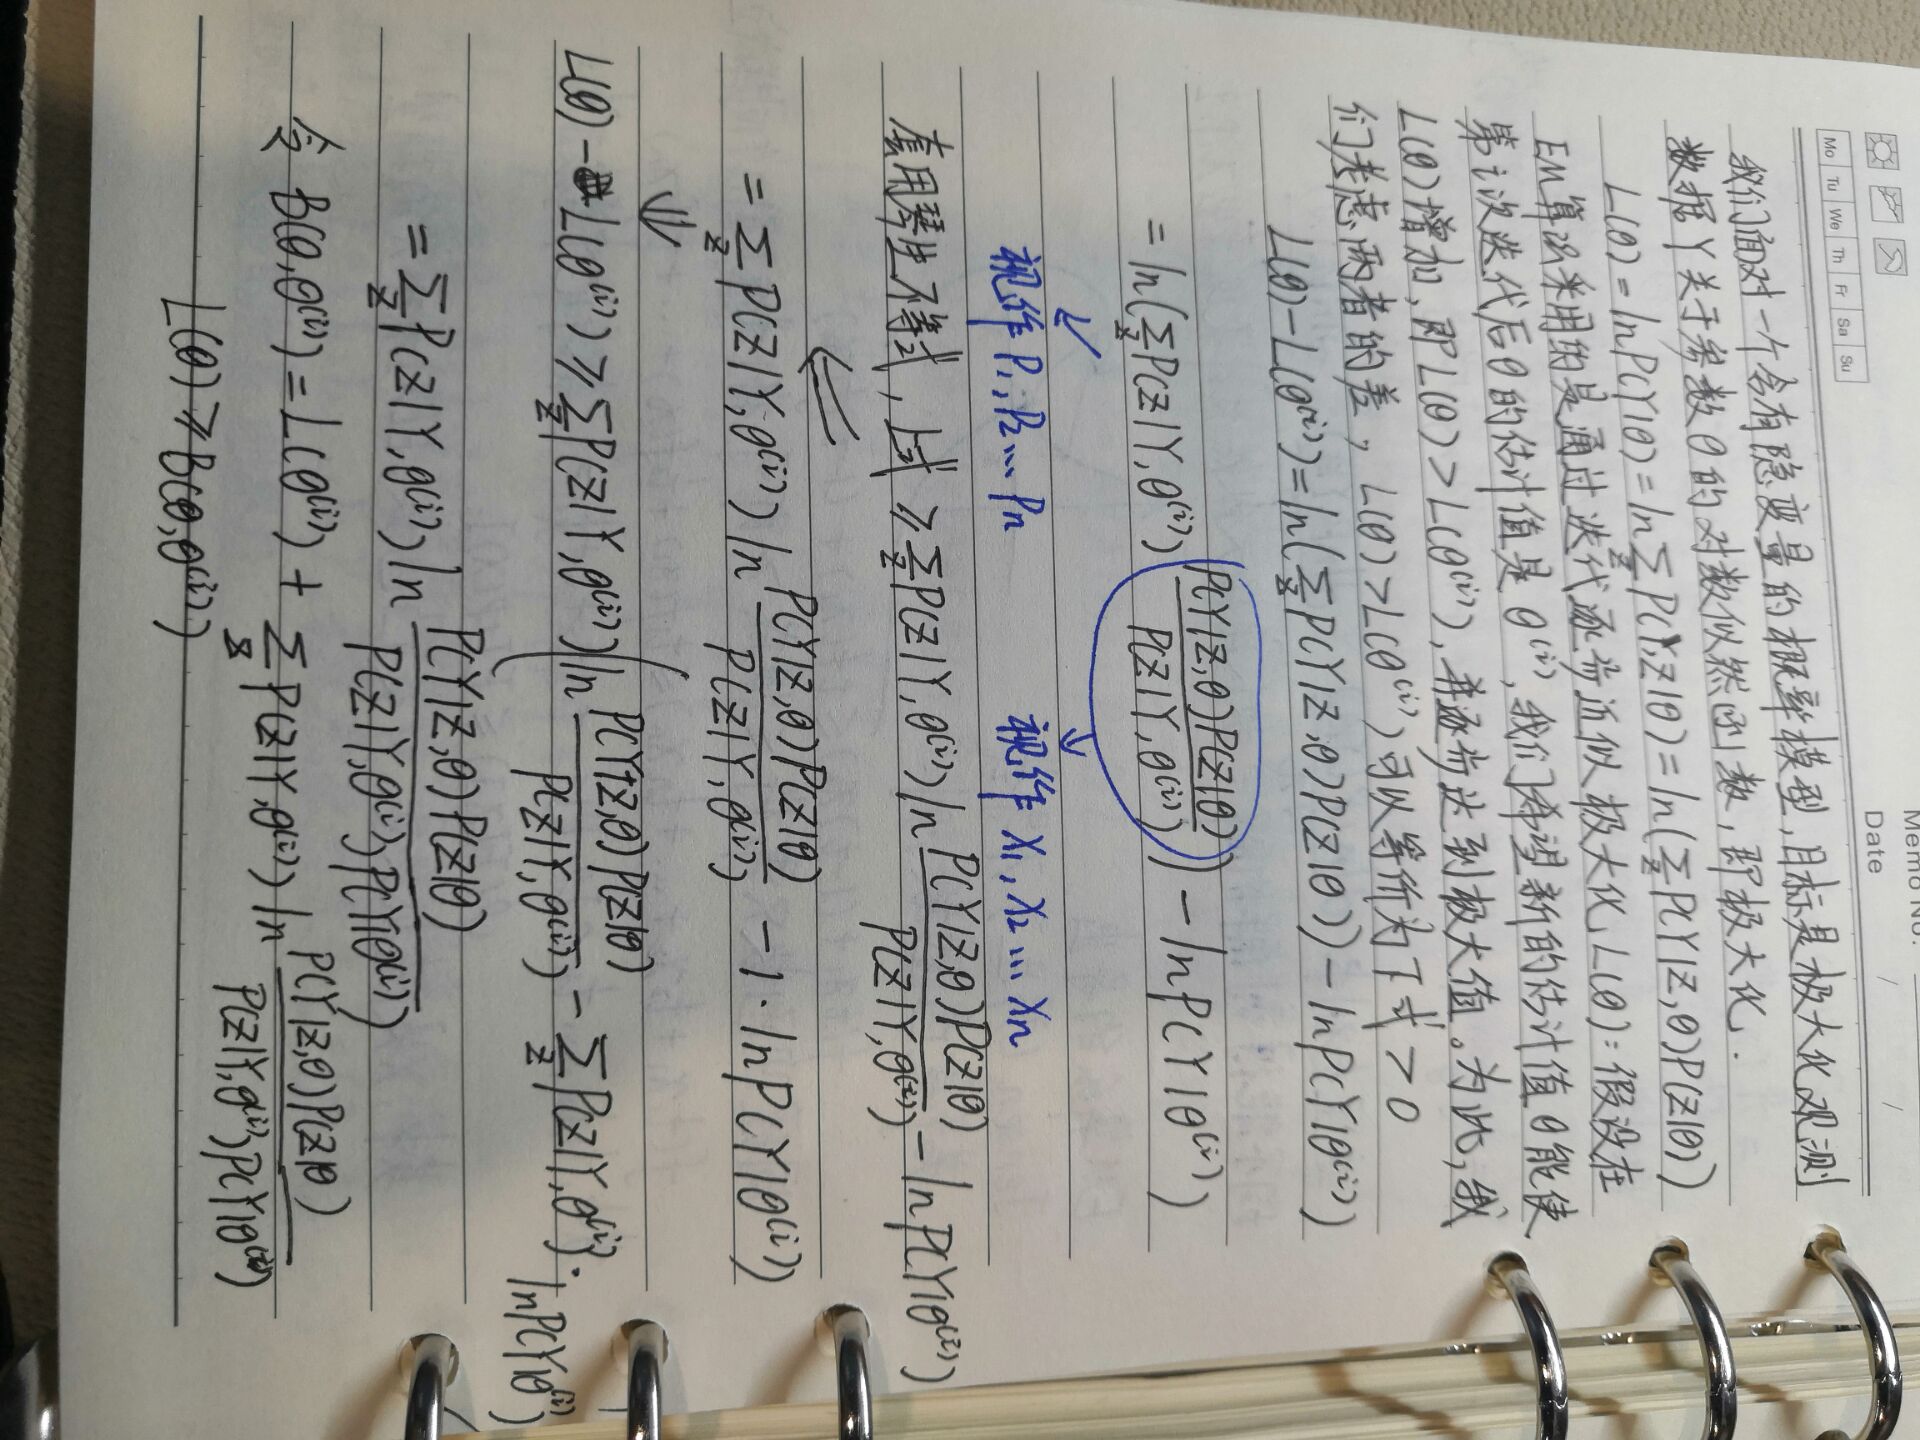 Memo No.
Date / /
Mo Tu We Th Fr Sa Su
我们面对一个含有隐变量的概率模型,目标是极大化观测
数据Y关于参数θ的对数似然函数,即极大化.
L(θ) = lnP(Y|θ) = ln∑_Z P(Y,Z|θ) = ln(∑_Z P(Y|Z,θ)P(Z|θ))
EM算法采用的是通过迭代逐步近似极大化L(θ):假设在
第i次迭代后θ的估计值是θ^(i),我们希望新的估计值θ能使
L(θ)增加,即L(θ) > L(θ^(i)),并逐步达到极大值。为此,我
们考虑两者的差,L(θ) > L(θ^(i))可以等价为下式 > 0
L(θ) - L(θ^(i)) = ln(∑_Z P(Y|Z,θ)P(Z|θ)) - lnP(Y|θ^(i))
= ln(∑_Z P(Z|Y,θ^(i)) P(Y|Z,θ)P(Z|θ) / P(Z|Y,θ^(i))) - lnP(Y|θ^(i))
视作 P₁,P₂...Pn 视作 X₁,X₂...Xn
套用琴生不等式,上式 ≥ ∑_Z P(Z|Y,θ^(i)) ln P(Y|Z,θ)P(Z|θ) / P(Z|Y,θ^(i)) - lnP(Y|θ^(i))
= ∑_Z P(Z|Y,θ^(i)) ln P(Y|Z,θ)P(Z|θ) / P(Z|Y,θ^(i)) - 1·lnP(Y|θ^(i))
⇓
L(θ) - L(θ^(i)) ≥ ∑_Z P(Z|Y,θ^(i)) (ln P(Y|Z,θ)P(Z|θ) / P(Z|Y,θ^(i)) - ∑_Z P(Z|Y,θ^(i))·lnP(Y|θ^(i))
= ∑_Z P(Z|Y,θ^(i)) ln P(Y|Z,θ)P(Z|θ) / P(Z|Y,θ^(i))P(Y|θ^(i))
令 B(θ,θ^(i)) = L(θ^(i)) + ∑_Z P(Z|Y,θ^(i)) ln P(Y|Z,θ)P(Z|θ) / P(Z|Y,θ^(i))P(Y|θ^(i))
L(θ) ≥ B(θ,θ^(i))